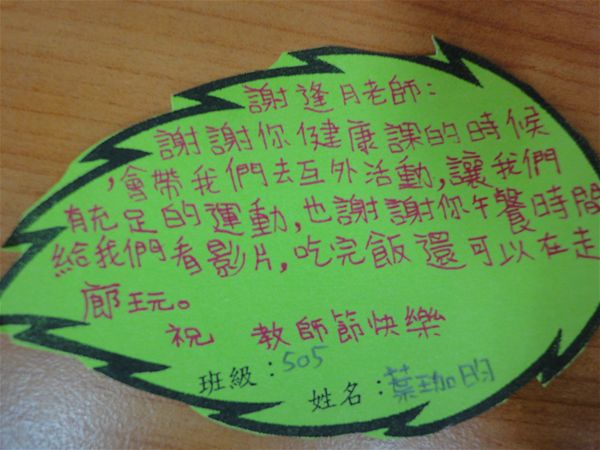 謝逢月老師：
謝謝你健康課的時候
，會帶我們去互外活動，讓我們
有充足的運動，也謝謝你午餐時間
給我們看影片，吃完飯還可以在走
廊玩。
祝 教師節快樂
班級：505
姓名：葉珈昀